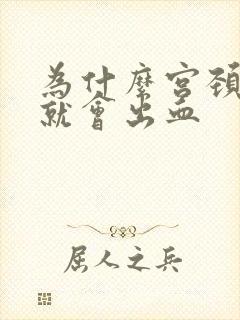 為什麼宮頸
就會出血
屈人之兵